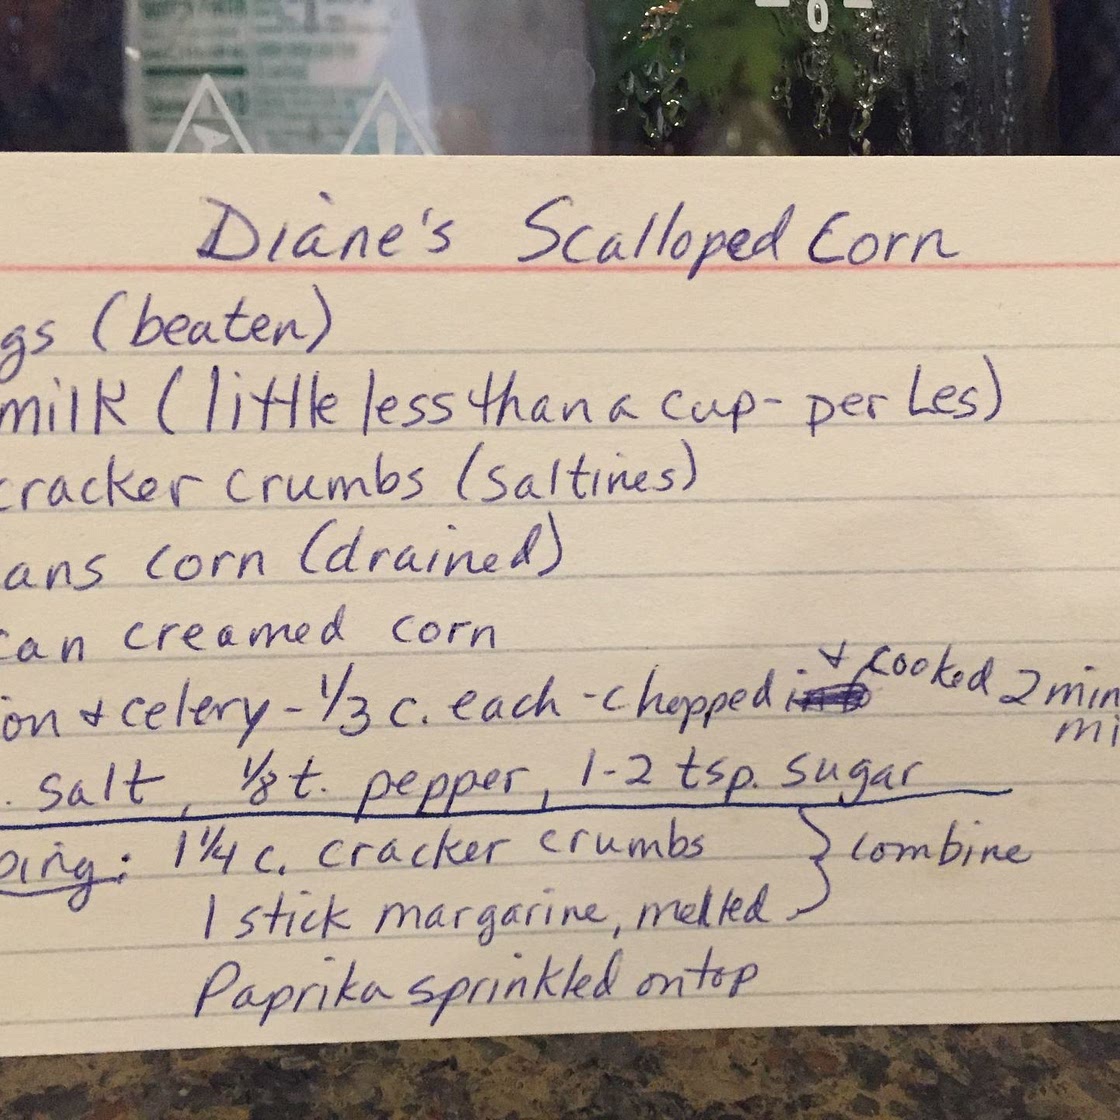 0
Diane's Scalloped Corn
gs (beaten)
milk (little less than a cup - per Les)
cracker crumbs (saltines)
ans corn (drained)
can creamed corn
ion & celery - 1/3 c. each - chopped & cooked 2 min
mi
. salt, 1/8 t. pepper, 1-2 tsp. sugar
ping: 1 1/4 c. cracker crumbs } combine
1 stick margarine, melted
Paprika sprinkled on top